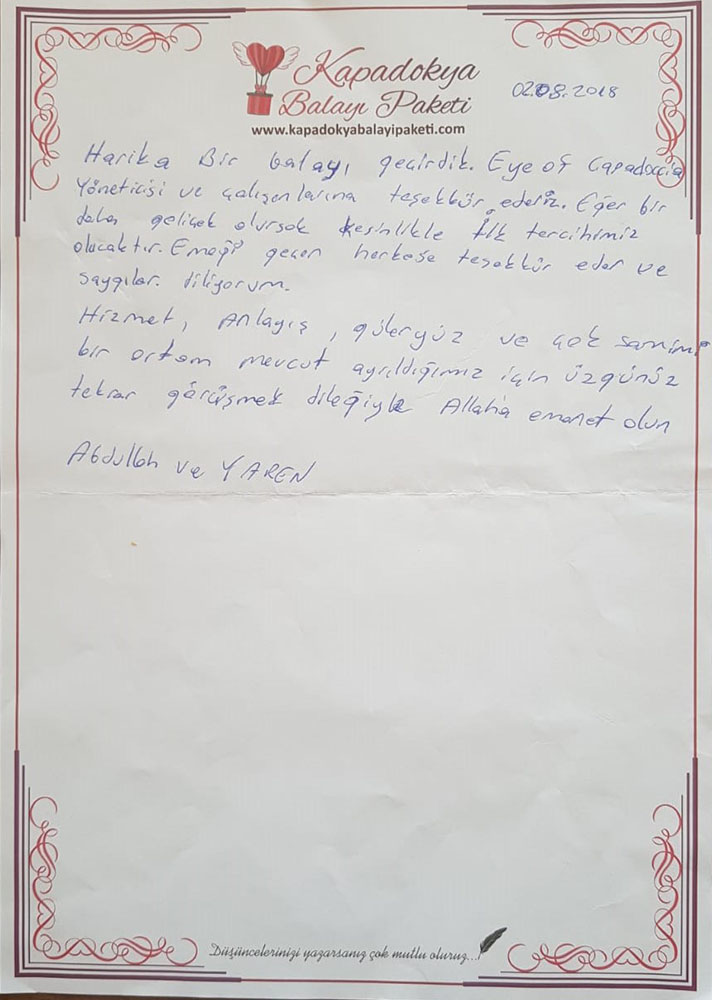 Kapadokya
Balayı Paketi
www.kapadokyabalayipaketi.com
02.08.2018
Harika Bir balayı geçirdik. Eye of Capadoccia
Yöneticisi ve çalışanlarına teşekkür ederiz. Eğer bir
daha gelicek olursak kesinlikle ilk tercihimiz
olucaktır. Emeği geçen herkese teşekkür eder ve
saygılar diliyorum.
Hizmet, Anlayış, güleryüz ve çok samimi
bir ortam mevcut ayrıldığımız için üzgünüz
tekrar görüşmek dileğiyle Allaha emanet olun
Abdullah ve YAREN
Düşüncelerinizi yazarsanız çok mutlu oluruz...